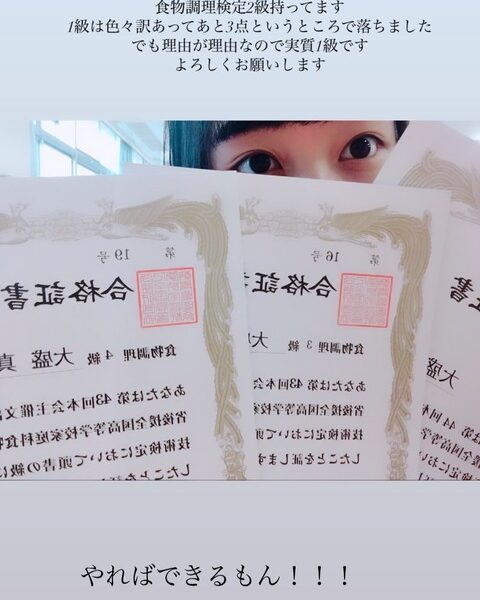 食物調理検定2級持ってます
1級は色々訳あってあと3点というところで落ちました
でも理由が理由なので実質1級です
よろしくお願いします
第 19 号
合格証書
食物調理 4 級
大盛 真
あなたは第43回本会主催文
省後援全国高等学校家庭科食
技術検定において頭書の級に
第 16 号
合格証
食物調理 3 級
大
あなたは第43回本
省後援全国高等学校
技術検定において頭
したことを証します
書
大盛
第 44 回本
全国高等学
やればできるもん！！！